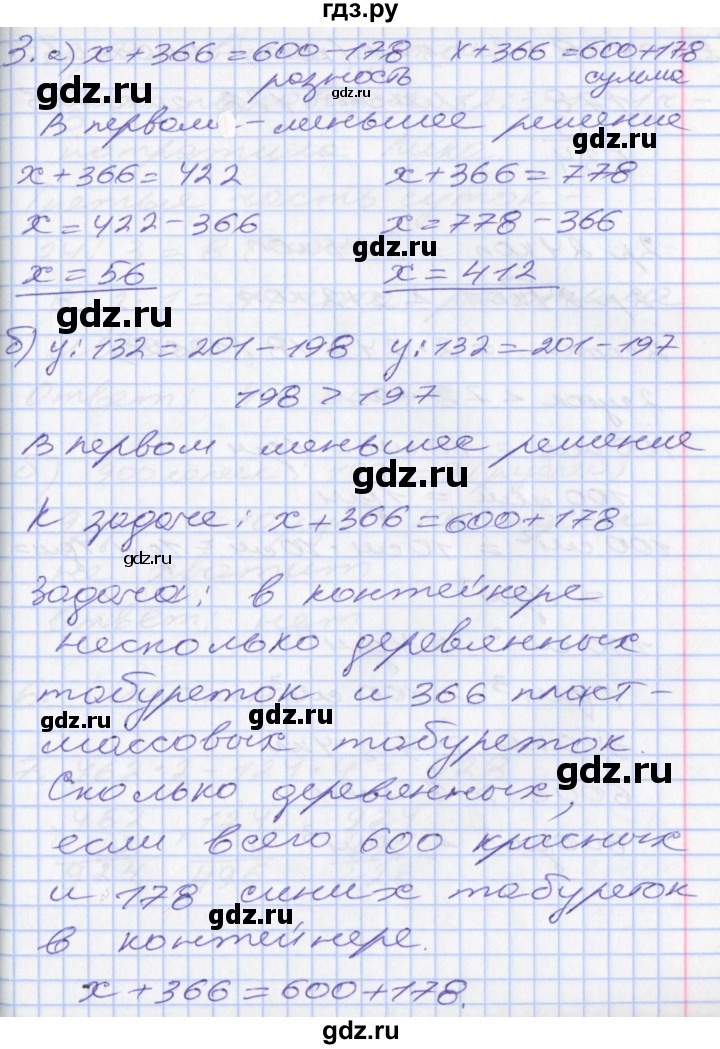 гдз.ру
3. а) x + 366 = 600 - 178 x + 366 = 600 + 178
разность сумма
gdz.ru gdz.ru
В первом - меньшее решение
x + 366 = 422 x + 366 = 778
x = 422 - 366 x = 778 - 366
gdz.ru
x = 56 x = 412
gdz.ru
б) y : 132 = 201 - 198 y : 132 = 201 - 197
198 > 197
В первом меньшее решение
gdz.ru
К задаче: x + 366 = 600 + 178
gdz.ru
Задача: в контейнере
несколько деревянных
табуреток и 366 пласт-
gdz.ru gdz.ru
массовых табуреток.
gdz.ru
Сколько деревянных,
если всего 600 красных
и 178 синих табуреток
gdz.ru
в контейнере.
x + 366 = 600 + 178.
gdz.ru gdz.ru
gdz.ru